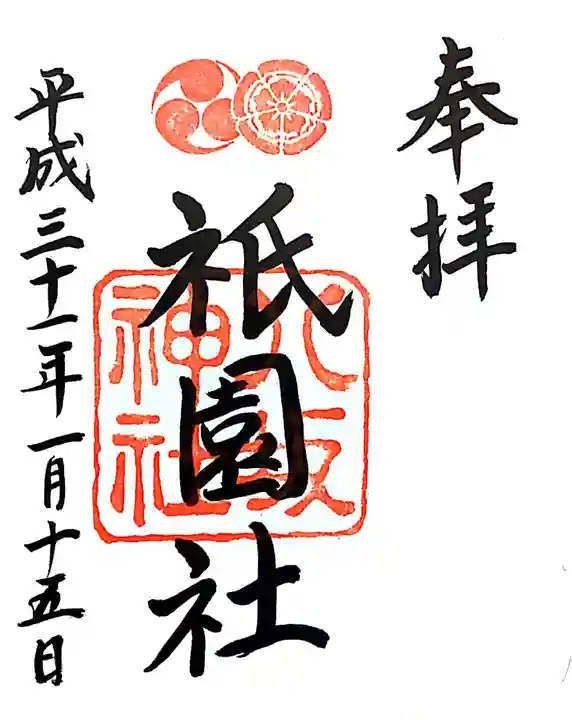 奉拝
祇園社
八坂
神社
平成三十一年一月十五日